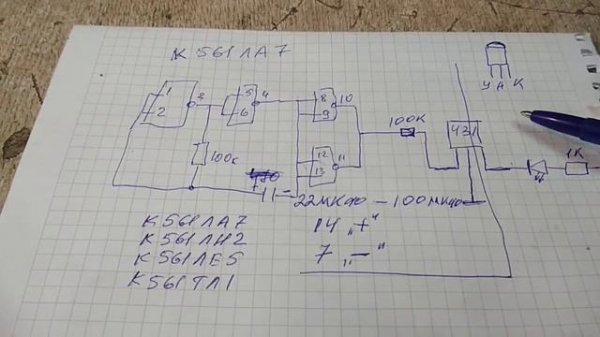 К561ЛА7
У А К
1
2
3
5
6
4
8
9
10
12
13
11
100к
100К
431
1К
+
-
22МКФ - 100МКФ
К561ЛА7
К561ЛН2
К561ЛЕ5
К561ТЛ1
14 „+“
7 „-“